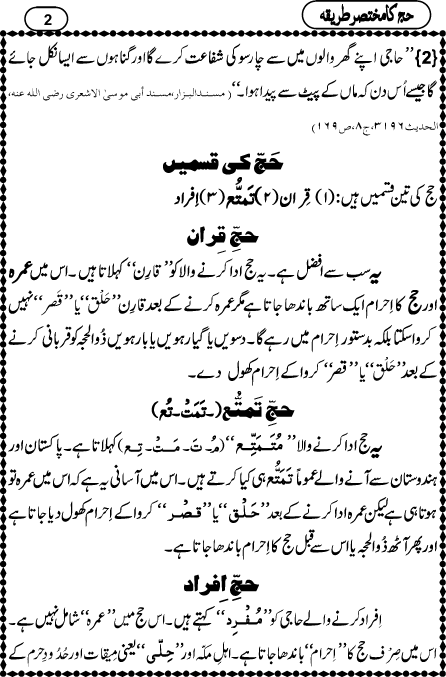 حج کا مختصر طریقہ
2
{2} ’’حاجی اپنے گھر والوں میں سے چار سو کی شفاعت کرے گا اور گناہوں سے ایسا نکل جائے
گا جیسے اُس دن کہ ماں کے پیٹ سے پیدا ہوا۔‘‘ (مسندالبزار،مسند أبي موسیٰ الاشعری رضی اللہ عنہ،
الحدیث۳۱۹۶،ج۸،ص۱۶۹)
حَجّ کی قسمیں
حج کی تین قسمیں ہیں: (۱) قِران (۲) تَمتُّع (۳) اِفراد
حجِ قِران
یہ سب سے افضل ہے۔ یہ حج ادا کرنے والا کو ’’قارِن‘‘ کہلاتا ہیں۔ اس میں عمرہ
اور حج کا اِحرام ایک ساتھ باندھا جاتا ہے مگر عمرہ کرنے کے بعد قارِن ’’حَلْق‘‘ یا ’’قَصر‘‘ نہیں
کرواسکتا بلکہ بدستور اِحرام میں رہے گا۔ دسویں یا گیارہویں یا بارہویں ذُوالحجہ کو قربانی کرنے
کے بعد ’’حَلْق‘‘ یا ’’قصر‘‘ کروا کے اِحرام کھول دے۔
حجِ تَمتُّع (۔تَمَتْ۔تُع)
یہ حج ادا کرنے والا ’’مُتَمَتِّع‘‘ (مُ۔تَ۔مَتْ۔تِع) کہلاتا ہے۔ پاکستان اور
ہندوستان سے آنے والے عموماً تَمَتُّع ہی کیا کرتے ہیں۔ اس میں آسانی یہ ہے کہ اس میں عمرہ تو
ہوتا ہی ہے لیکن عمرہ ادا کرنے کے بعد ’’حَلْق‘‘ یا ’’قصْر‘‘ کروا کے اِحرام کھول دیا جاتا ہے
اور پھر آٹھ ذُوالحجہ یا اس سے قبل حج کا اِحرام باندھا جاتا ہے۔
حجِ اِفراد
اِفراد کرنے والے حاجی کو ’’مُفْرِد‘‘ کہتے ہیں۔ اس حج میں ’’عمرہ‘‘ شامل نہیں ہے۔
اس میں صِرف حج کا ’’اِحرام‘‘ باندھا جاتا ہے۔ اہلِ مکّہ اور ’’حِلّی‘‘ یعنی مِیقات اور حُدُودِ حرم کے